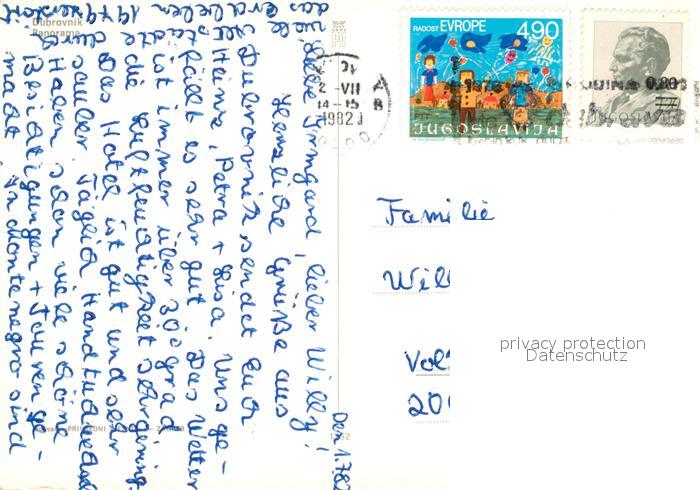 Dubrovnik
Panorama
Den 1.7.82
Liebe Irmgard, lieber Willy!
Herzliche Grüße aus
Dubrovnik sendet Euch
Heinz, Petra + Lisa. Uns ge-
fällt es sehr gut. Das Wetter
ist immer über 30 grad
die Luftfeuchtigkeit sehr gering.
Das Hotel ist gut und sehr
sauber. Täglich Handtuchwechsel
Haben schon viele schöne
Besichtigungen + Touren ge-
macht. In Montenegro sind
1979
RADOST EVROPE
4,90
JUGOSLAVIJA
0,80
2 VII
14-15
1982
Familie
Will
Vol
20
privacy protection
Datenschutz